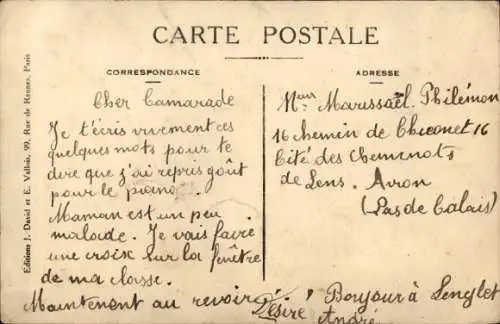 CARTE POSTALE
CORRESPONDANCE
Cher Camarade
Je t'écris vivement ces
quelques mots pour te
dire que j'ai repris goût
pour le piano.
Maman est un peu
malade. Je vais faire
une croix sur la fenêtre
de ma classe.
Maintenant au revoir
Désiré
Bonjour à Lenglet
André
ADRESSE
Philémon
16 chemin de 16
Cité des Cheminots
de Lens. Avion
(Pas de Calais)
Editions J. David et E. Vallois, 99, Rue de Rennes, Paris